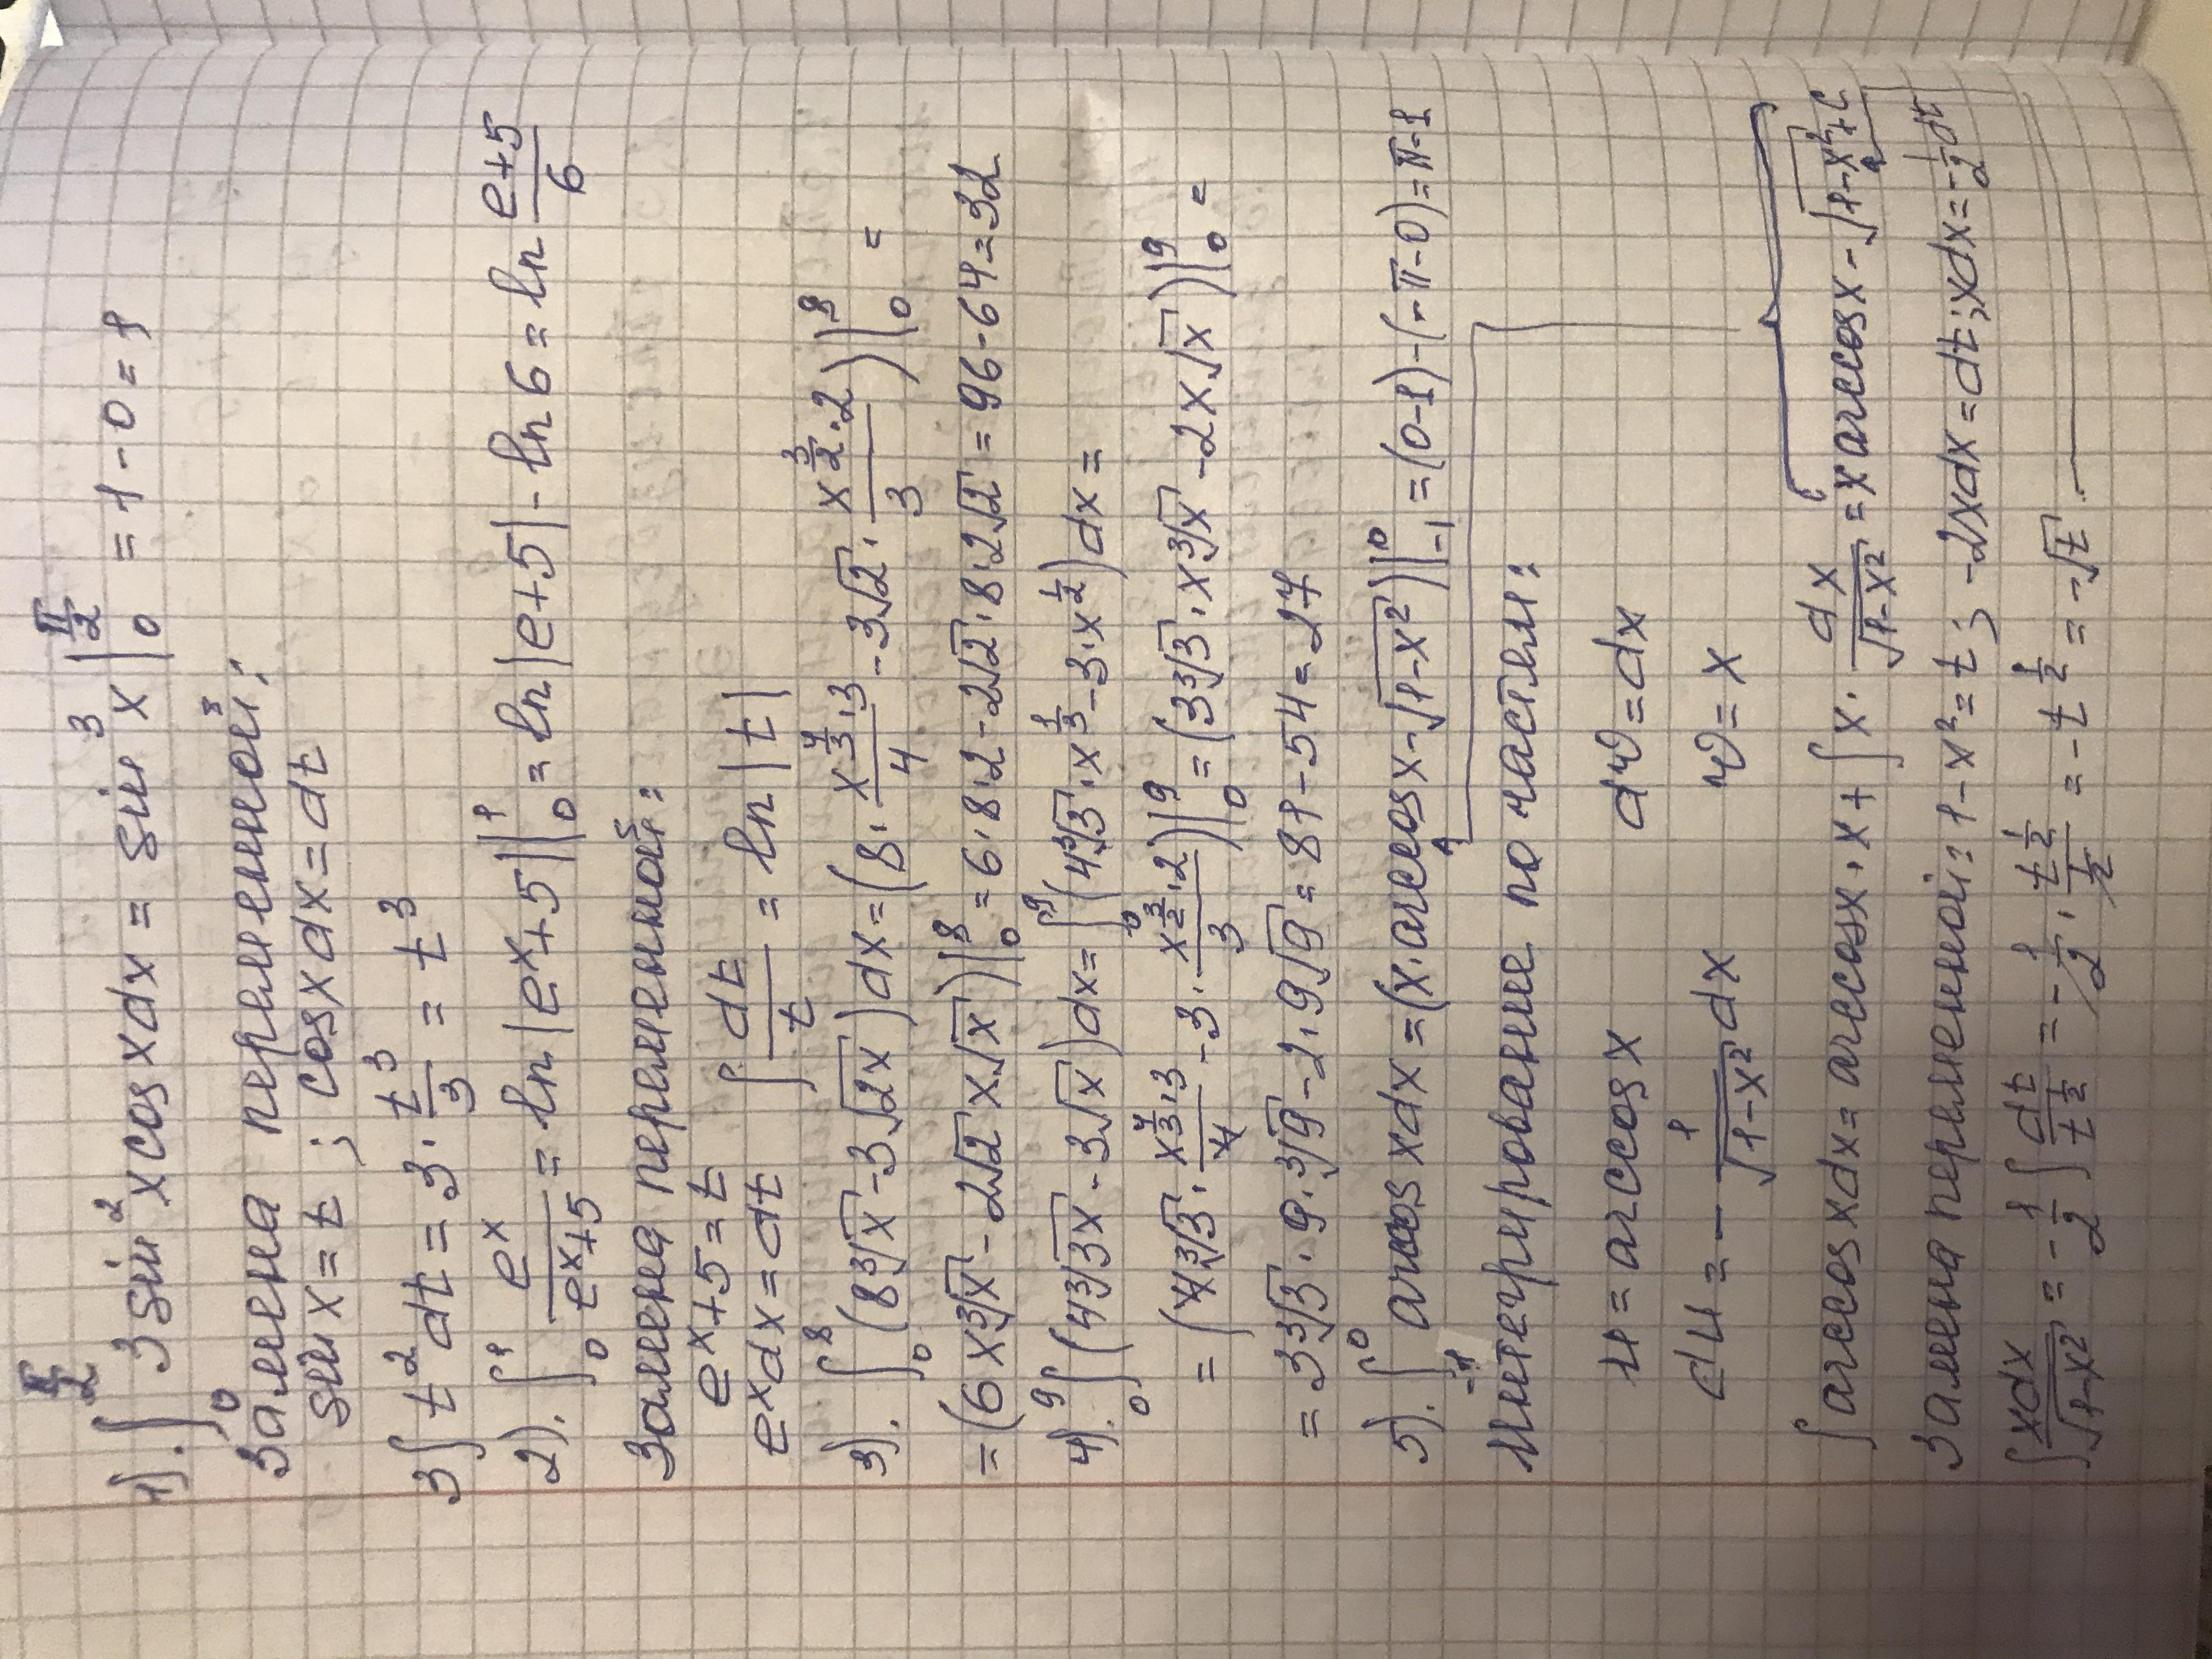 1). ∫₀^(π/2) 3 sin²x cos x dx = sin³x |₀^(π/2) = 1 - 0 = 1
Замена переменной:
sin x = t ; cos x dx = dt
3∫t²dt = 3 · t³/3 = t³
2). ∫₀¹ eˣ/(eˣ+5) = ln|eˣ+5| |₀¹ = ln|e+5| - ln 6 = ln (e+5)/6
Замена переменной:
eˣ+5 = t ∫ dt/t = ln|t|
eˣdx = dt
3). ∫₀⁸ (8∛x - 3√(2x))dx = (8 · (x^(4/3)·3)/4 - 3√2 · (x^(3/2)·2)/3)|₀⁸ =
= (6x∛x - 2√2 x√x)|₀⁸ = 6·8·2 - 2√2·8·2√2 = 96 - 64 = 32
4). ∫₀⁹ (4∛(3x) - 3√x)dx = ∫₀⁹ (4∛3 · x^(1/3) - 3·x^(1/2))dx =
= (4∛3 · (x^(4/3)·3)/4 - 3 · (x^(3/2)·2)/3)|₀⁹ = (3∛3 · x∛x - 2x√x)|₀⁹ =
= 3∛3 · 9·∛9 - 2·9√9 = 81 - 54 = 27
5). ∫₋₁⁰ arccos x dx = (x·arccos x - √(1-x²))|₋₁⁰ = (0-1) - (-π-0) = π-1
Интегрирование по частям:
u = arccos x dv = dx
du = - 1/√(1-x²) dx v = x
∫ arccos x dx = arccos x · x + ∫ x · dx/√(1-x²) = x arccos x - √(1-x²) + C
Замена переменной: 1-x² = t ; -2xdx = dt ; xdx = -1/2 dt
∫ xdx/√(1-x²) = -1/2 ∫ dt/t^(1/2) = -1/2 · t^(1/2)/(1/2) = -t^(1/2) = -√t